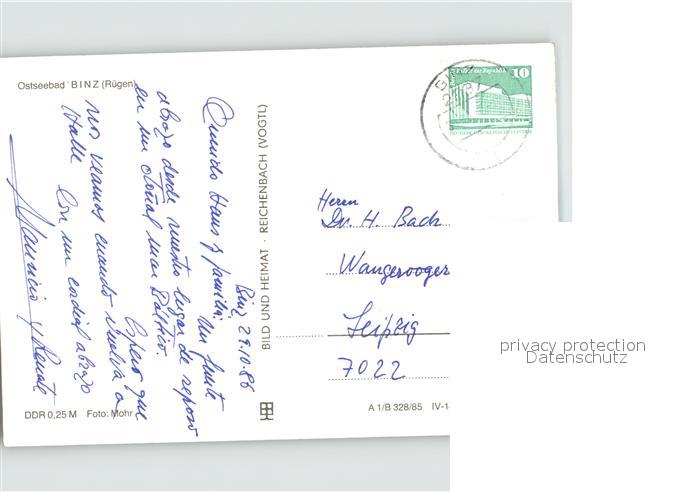 Ostseebad BINZ (Rügen)
Binz 29.10.86
Querido Hans y familia: Un fuerte
abrazo desde nuestro lugar de reposo
en un otoñal mar Báltico.
Espero que
nos veamos cuando vuelva a
Halle. Con un cordial abrazo
Mauricio y Renate
DDR 0,25 M Foto: Mohr
BILD UND HEIMAT · REICHENBACH (VOGTL)
10
Herrn
Dr. H. Bach
Wangerooger
Leipzig
7022
A 1/B 328/85 IV-1
privacy protection
Datenschutz